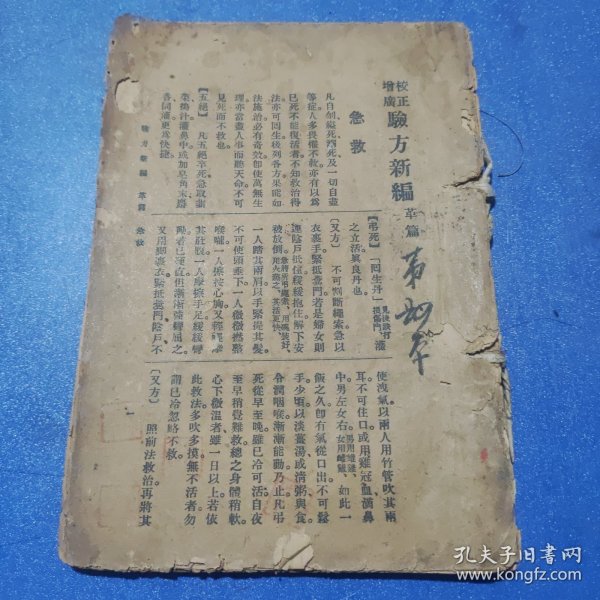 校正
增廣
驗方新編
革篇
急救
凡自刎縊死溺死及一切自盡
等症人多畏懼不救亦有以爲
已死不能復活者不知救治得
法亦可回生後列各方果能如
法施治必有奇效即使萬無生
理亦當盡人事而聽天命不可
見死而不救也
【五絕】 凡五絕卒死急取韮
菜搗汁灌鼻中或加皂角末
各同灌更爲快捷
驗方新編 革篇 急救
【弔死】「回生丹」見後跌打損傷門灌
之立活與良丹也
〔又方〕 不可割斷繩索急以
衣裹手緊抵糞門若是婦女則
連陰戶抵住緩緩抱住解下安
被放倒
一人踏其兩肩以手緊提其髮
不可使頭垂下一人微微撚整
喉嚨一人擦按心胸又輕輕
其肚腹一人摩擦手足緩緩彎
動若已殭直但漸漸強彎屈之
又用脚裹衣緊抵糞門陰戶不
使洩氣以兩人用竹管吹其兩
耳不可住口或用雞冠血滴鼻
中男左女右男用雄雞女用雌雞如此一
飯之久即有氣從口出不可鬆
手少頃以淡薑湯或清粥與食
令潤咽喉漸漸能動乃止凡弔
死從早至晚雖已冷可活自夜
至早稍覺難救總之身體稍軟
心下微溫者雖一日以上若依
此救法多吹多摸無不活者勿
謂已冷忽略不救
〔又方〕 照前法救治再將其
孔夫子旧书网
www.kongfz.com